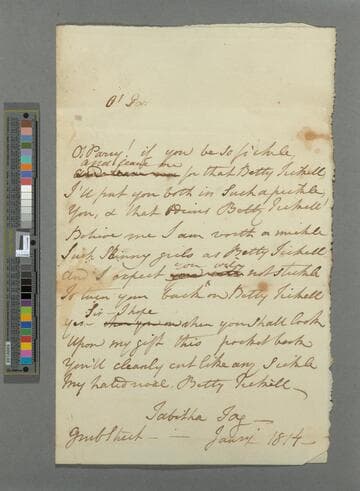 O' Dr.
O! Parry! if you be so fickle
and leave me
and leave me for that Betty Tickell
I'll put you both in such a pickle,
You, & that Betty Tickell!
Believe me I am worth a mickle
Such skinny girls as Betty Tickell
And I expect not stickle
To turn your back on Betty Tickell
Sir I hope
yes when you shall look
Upon my gift this pocket book
You'll cleanly cut like any Sickle
My hated rival Betty Tickell
Tabitha Fag
Grub Street Jany 1814